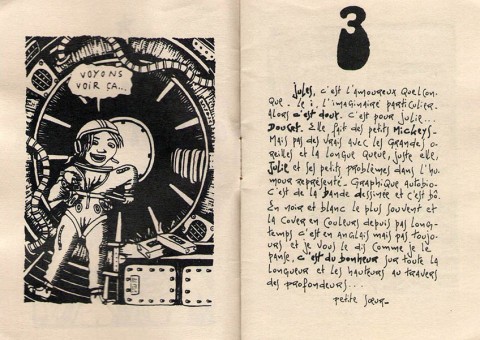 VOYONS
VOIR ÇA...
3
Jules, c'est l'amoureux quelcon-
que. Le i, l'imaginaire particulier.
Alors c'est dout. C'est pour Julie...
Doucet. Elle fait des petits Mickeys.
Mais pas des vrais avec les grandes o-
reilles et la longue queue, juste elle,
Julie et ses petits problèmes dans l'hu-
mour représenté. Graphique, autobio-
c'est de la bande dessinée et c'est bô.
En noir et blanc le plus souvent et
la cover en couleurs depuis pas long-
temps c'est en anglais mais pas toujo-
urs et je vous le dis comme je le
panse, c'est du bonheur sur toute la
longueur et les hauteurs au travers
des profondeurs...
petite sœur-